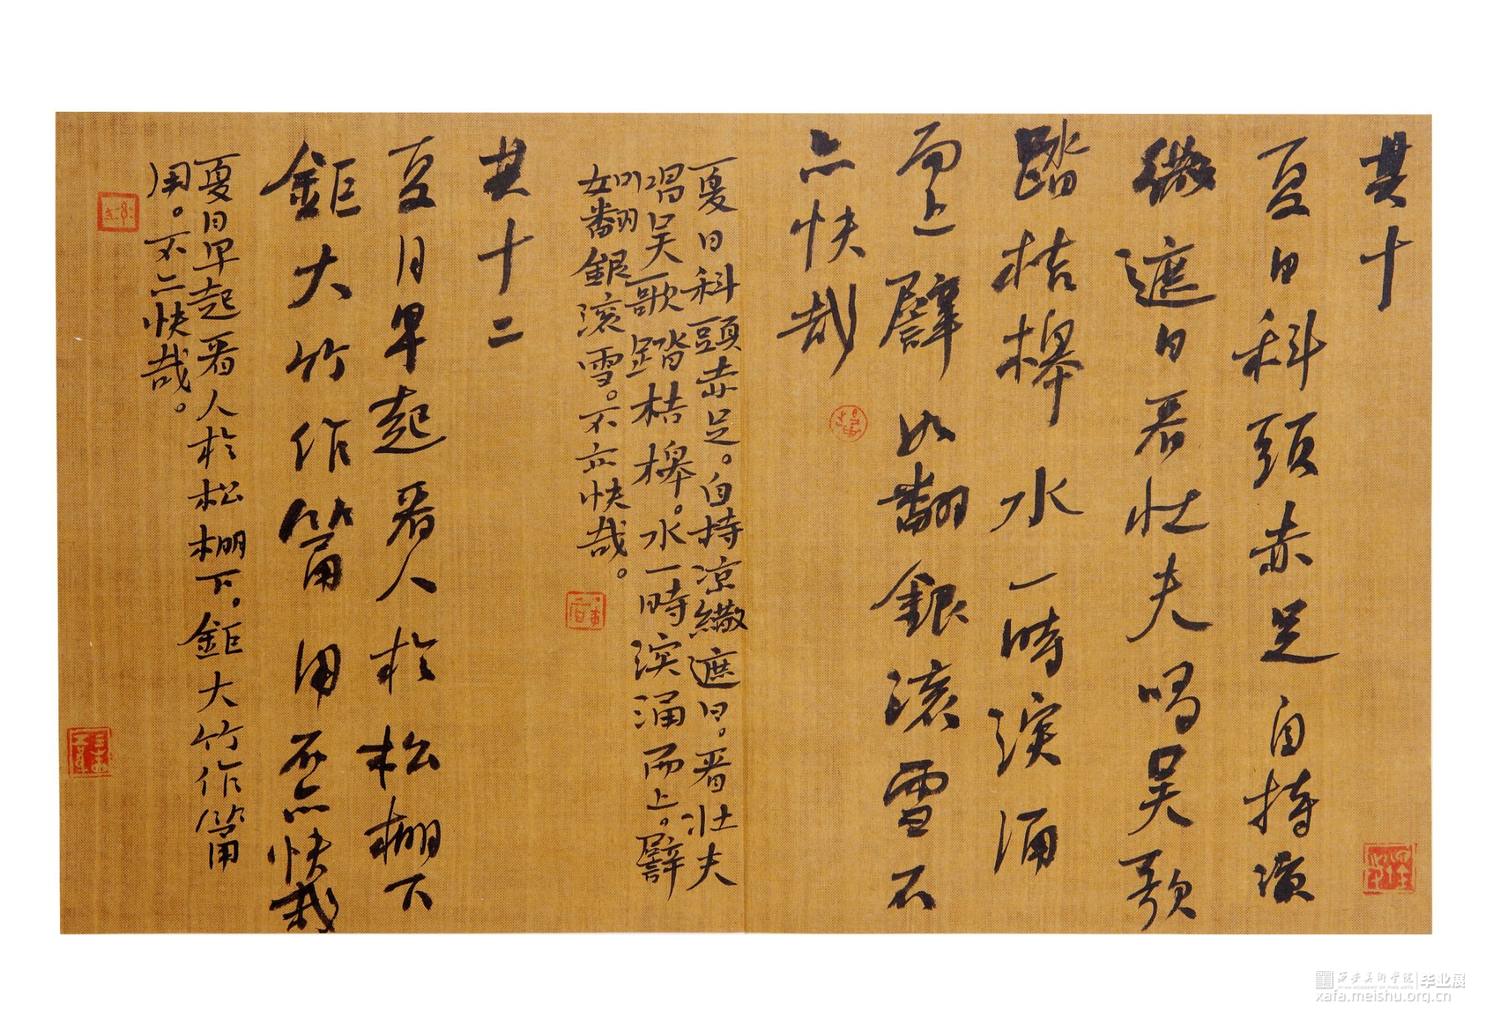 其十
夏日科頭赤足自持涼
繖遮日看壯夫唱吴歌
踏桔槔水一時湥涌
而上譬如翻銀滚雪不
亦快哉
夏日科頭赤足。自持凉繖遮日。看壮夫
唱吴歌踏桔槔。水一時湥涌而上。譬
如翻銀滚雪。不亦快哉。
其十二
夏月早起看人於松棚下
鉅大竹作筩用不亦快哉
夏月早起看人於松棚下。鉅大竹作筩
用。不亦快哉。
西安美術学院 毕业展
xafa.meishu.org.cn